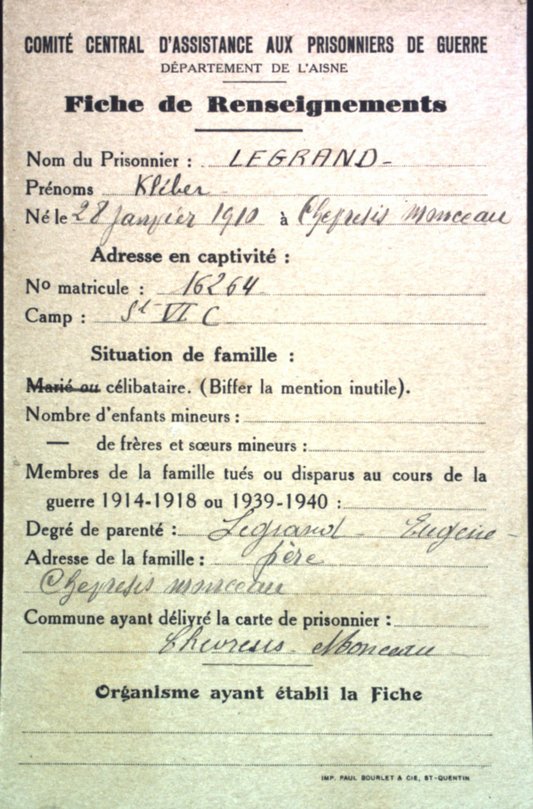 COMITÉ CENTRAL D'ASSISTANCE AUX PRISONNIERS DE GUERRE
DÉPARTEMENT DE L'AISNE
Fiche de Renseignements
Nom du Prisonnier : LEGRAND -
Prénoms Kléber
Né le 28 Janvier 1910 à Chevresis Monceau
Adresse en captivité :
No matricule : 16264
Camp : St VI C
Situation de famille :
Marié ou célibataire. (Biffer la mention inutile).
Nombre d'enfants mineurs :
— de frères et sœurs mineurs :
Membres de la famille tués ou disparus au cours de la
guerre 1914-1918 ou 1939-1940 :
Degré de parenté : Legrand - Eugène -
Adresse de la famille : père
Chevresis Monceau
Commune ayant délivré la carte de prisonnier :
Chevresis - Monceau -
Organisme ayant établi la Fiche
IMP. PAUL BOURLET & CIE, ST-QUENTIN